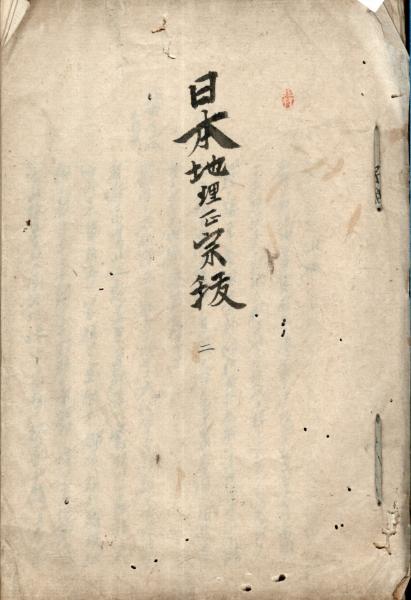 日本地理正宗
二